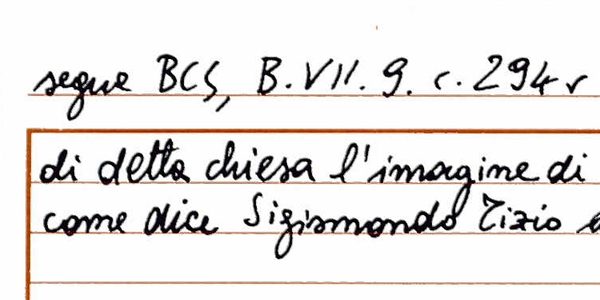 segue BCS, B.VII.9. c.294r
di detta chiesa l'imagine di
come dice Sigismondo Tizio